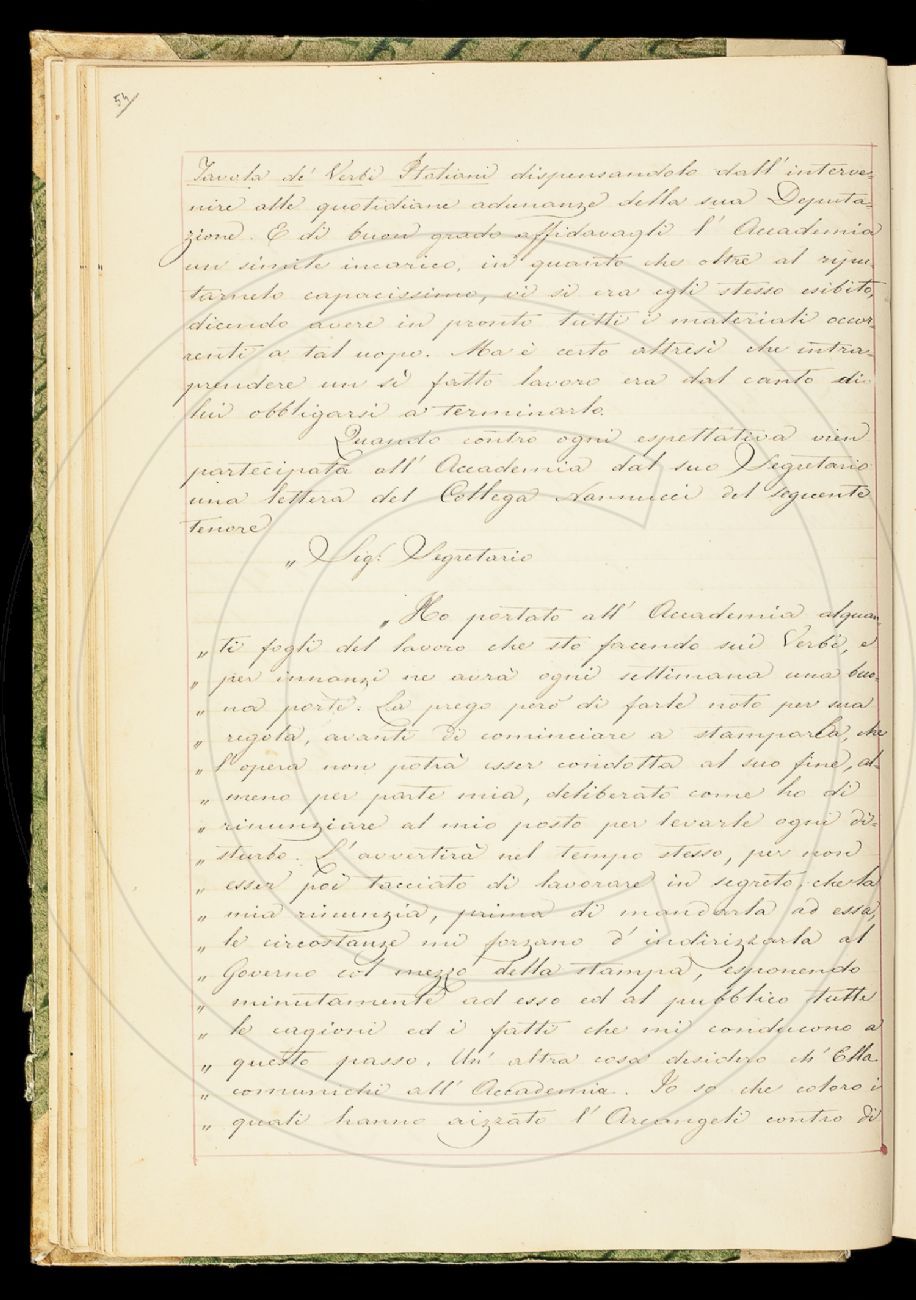 54
Tavola de' Verbi Italiani dispensandolo dall' interve=
nire alle quotidiane adunanze della sua Deputa=
zione. E di buon grado affidavagli l' Accademia
un simile incarico, in quanto che oltre al ripu=
tarnelo capacissimo, vi si era egli stesso esibito,
dicendo avere in pronto tutti i materiali occor=
renti a tal uopo. Ma è certo altresì che intra=
prendere un sì fatto lavoro era dal canto di
lui obbligarsi a terminarlo.
Quando contro ogni espettativa vien
partecipata all' Accademia dal suo Segretario
una lettera del Collega Nannucci del seguente
tenore
„ Sig. Segretario
„ Ho portato all' Accademia alquan=
„ ti fogli del lavoro che sto facendo sui Verbi, e
„ per innanzi ne avrà ogni settimana una buo=
„ na parte. La prego però di farle noto per sua
„ regola, avanti di cominciare a stamparla, che
„ l'opera non potrà esser condotta al suo fine, al=
„ meno per parte mia, deliberato come ho di
„ rinunziare al mio posto per levarle ogni di=
„ sturbo. L' avvertirà nel tempo stesso, per non
„ esser poi tacciato di lavorare in segreto, che la
„ mia rinunzia, prima di mandarla ad essa,
„ le circostanze mi forzano d' indirizzarla al
„ Governo col mezzo della stampa, esponendo
„ minutamente ad esso ed al pubblico tutte
„ le cagioni ed i fatti che mi conducono a
„ questo passo. Un' altra cosa desidero ch' Ella
„ comunichi all' Accademia. Io so che coloro i
„ quali hanno aizzato l' Arcangeli contro di